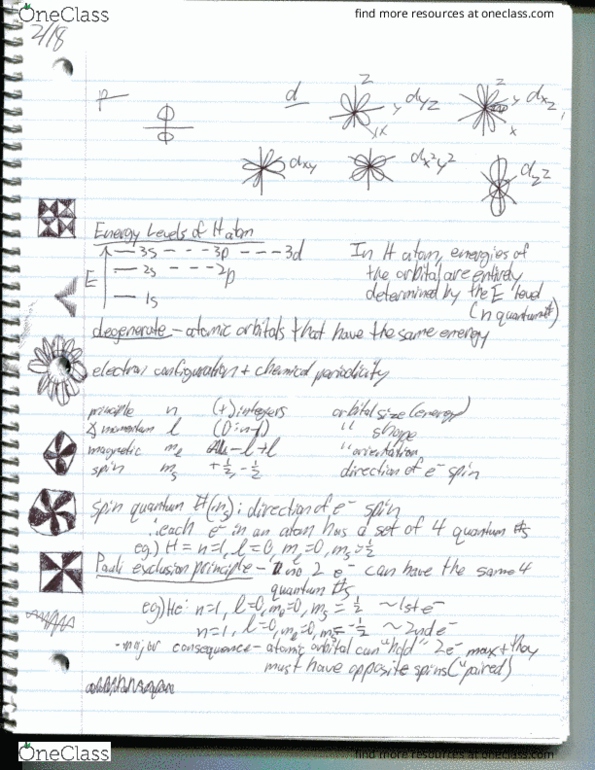 OneClass
find more resources at oneclass.com
2/18
p
d
z
y
dyz
x
z
y
dxz,
x
dxy
dx²y²
dz²
Energy Levels of H atom
E
3s - - - 3p - - - 3d
2s - - - 2p
1s
In H atom, energies of
the orbital are entirely
determined by the E level
(n quantum #)
degenerate - atomic orbitals that have the same energy
electron configuration + chemical periodicity
principle n (+) integers orbital size (energy)
∡ momentum l (0:n-1) " shape
magnetic ml -l→+l " orientation
spin ms +½, -½ direction of e⁻ spin
spin quantum #(ms): direction of e⁻ spin
∴ each e⁻ in an atom has a set of 4 quantum #s
eg.) H = n=1, l=0, ml=0, ms=½
Pauli exclusion principle - no 2 e⁻ can have the same 4
quantum #s
eg) He: n=1, l=0, ml=0, ms=½ ~1st e⁻
n=1, l=0, ml=0, ms=-½ ~2nd e⁻
-major consequence - atomic orbital can "hold" 2e⁻ max + they
must have opposite spins ("paired)
OneClass
find more resources at oneclass.com